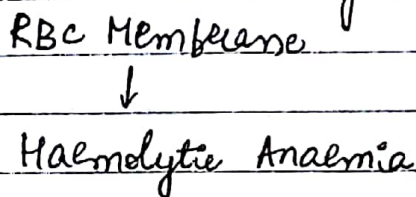 RBC Membrane
↓
Haemolytic Anaemia